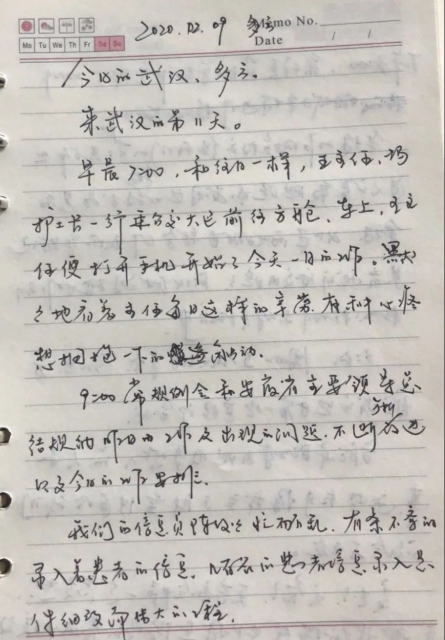 2020.02.09 多云
Memo No.
Mo Tu We Th Fr Sa Su
Date / /
今日的武汉、多云。
来武汉的第11天。
早晨7:00，和往日一样，王主任，冯
护士长一行乘车前往方舱，车上，王主
任便打开手机开始了今天一日的工作。默默
地看着主任每日这样的辛劳，有种心疼
想拥抱一下的冲动。
9:00 常规例会和安徽省主要领导总
结归纳昨日的工作及出现的问题，不断改进
以及今日的工作安排。
我们的信息员陈 忙而不乱，有条不紊的
录入着患者的信息， 的患者信息录入是
件细致而伟大的工程。